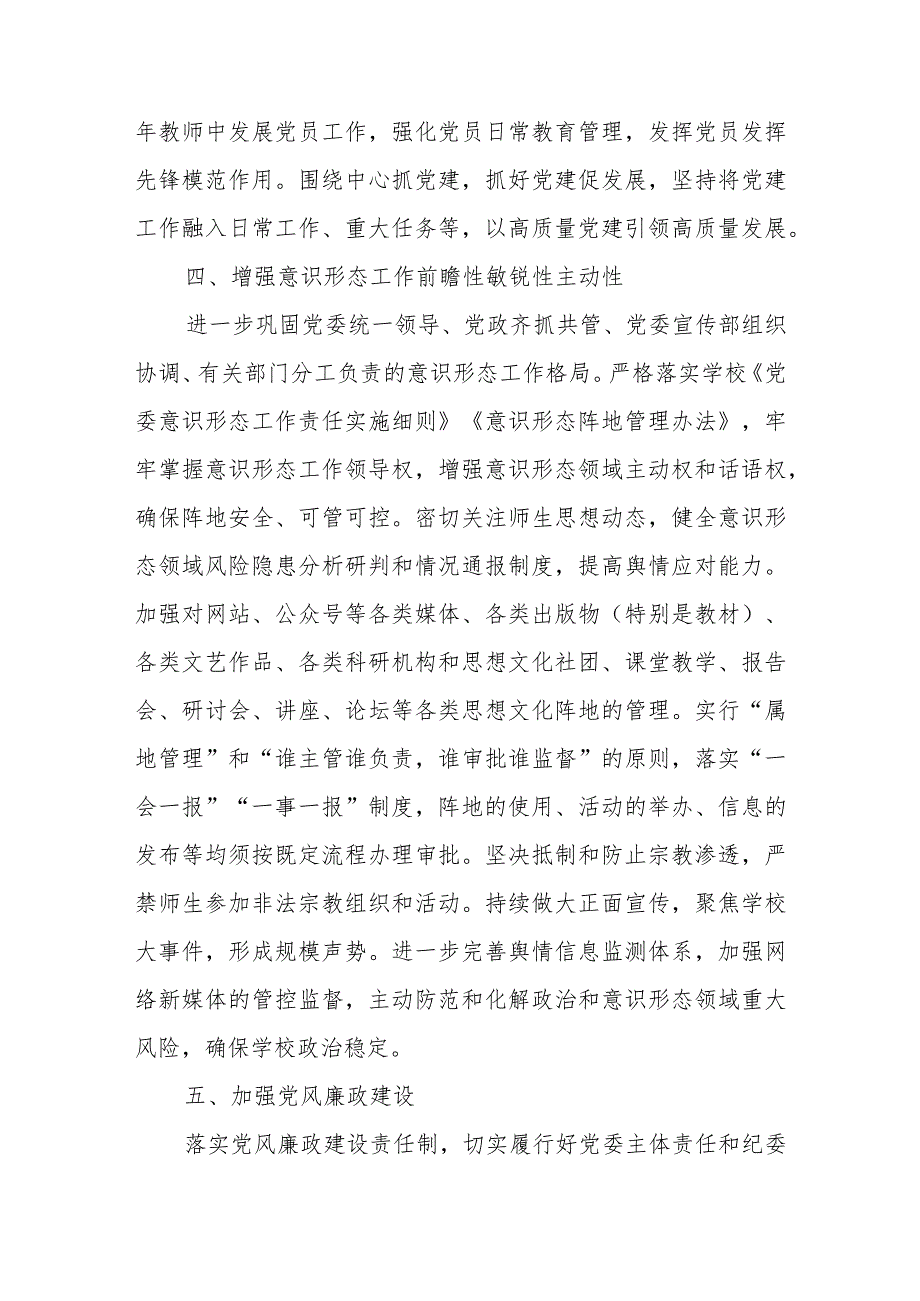 年教师中发展党员工作，强化党员日常教育管理，发挥党员发挥
先锋模范作用。围绕中心抓党建，抓好党建促发展，坚持将党建
工作融入日常工作、重大任务等，以高质量党建引领高质量发展。
四、增强意识形态工作前瞻性敏锐性主动性
进一步巩固党委统一领导、党政齐抓共管、党委宣传部组织
协调、有关部门分工负责的意识形态工作格局。严格落实学校《党
委意识形态工作责任实施细则》《意识形态阵地管理办法》，牢
牢掌握意识形态工作领导权，增强意识形态领域主动权和话语权，
确保阵地安全、可管可控。密切关注师生思想动态，健全意识形
态领域风险隐患分析研判和情况通报制度，提高舆情应对能力。
加强对网站、公众号等各类媒体、各类出版物（特别是教材）、
各类文艺作品、各类科研机构和思想文化社团、课堂教学、报告
会、研讨会、讲座、论坛等各类思想文化阵地的管理。实行“属
地管理”和“谁主管谁负责，谁审批谁监督”的原则，落实“一
会一报”“一事一报”制度，阵地的使用、活动的举办、信息的
发布等均须按既定流程办理审批。坚决抵制和防止宗教渗透，严
禁师生参加非法宗教组织和活动。持续做大正面宣传，聚焦学校
大事件，形成规模声势。进一步完善舆情信息监测体系，加强网
络新媒体的管控监督，主动防范和化解政治和意识形态领域重大
风险，确保学校政治稳定。
五、加强党风廉政建设
落实党风廉政建设责任制，切实履行好党委主体责任和纪委